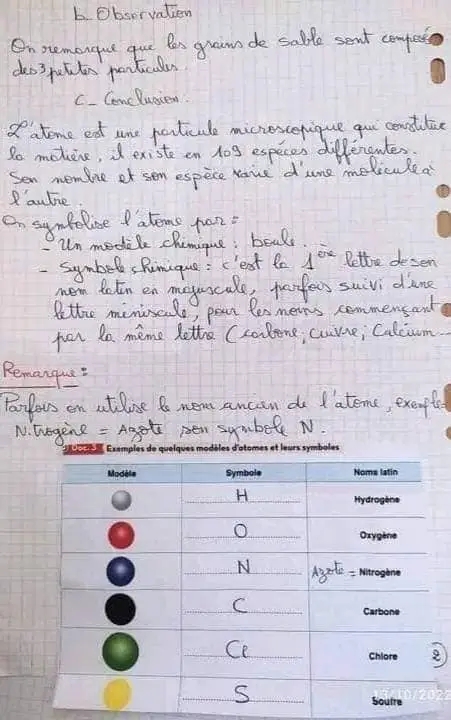 b. Observation
On remarque que les grains de sable sont composés
des 3 petites particules.
C - Conclusion.
L'atome est une particule microscopique qui constitue
la matière, il existe en 109 espèces différentes.
Son nombre et son espèce varie d'une molécule à
l'autre.
On symbolise l'atome par :
- Un modèle chimique : boule.
- Symbole chimique : c'est la 1ère lettre de son
nom latin en majuscule, parfois suivi d'une
lettre miniscule, pour les noms commençant
par la même lettre (carbone, cuivre, Calcium...
Remarque :
Parfois on utilise le nom ancien de l'atome, exemple
Nitrogène = Azote son symbole N.
Doc.3 Exemples de quelques modèles d'atomes et leurs symboles
Modèle Symbole Noms latin
H Hydrogène
O Oxygène
N Azote = Nitrogène
C Carbone
Cl Chlore 2
S Soufre
13/10/2022